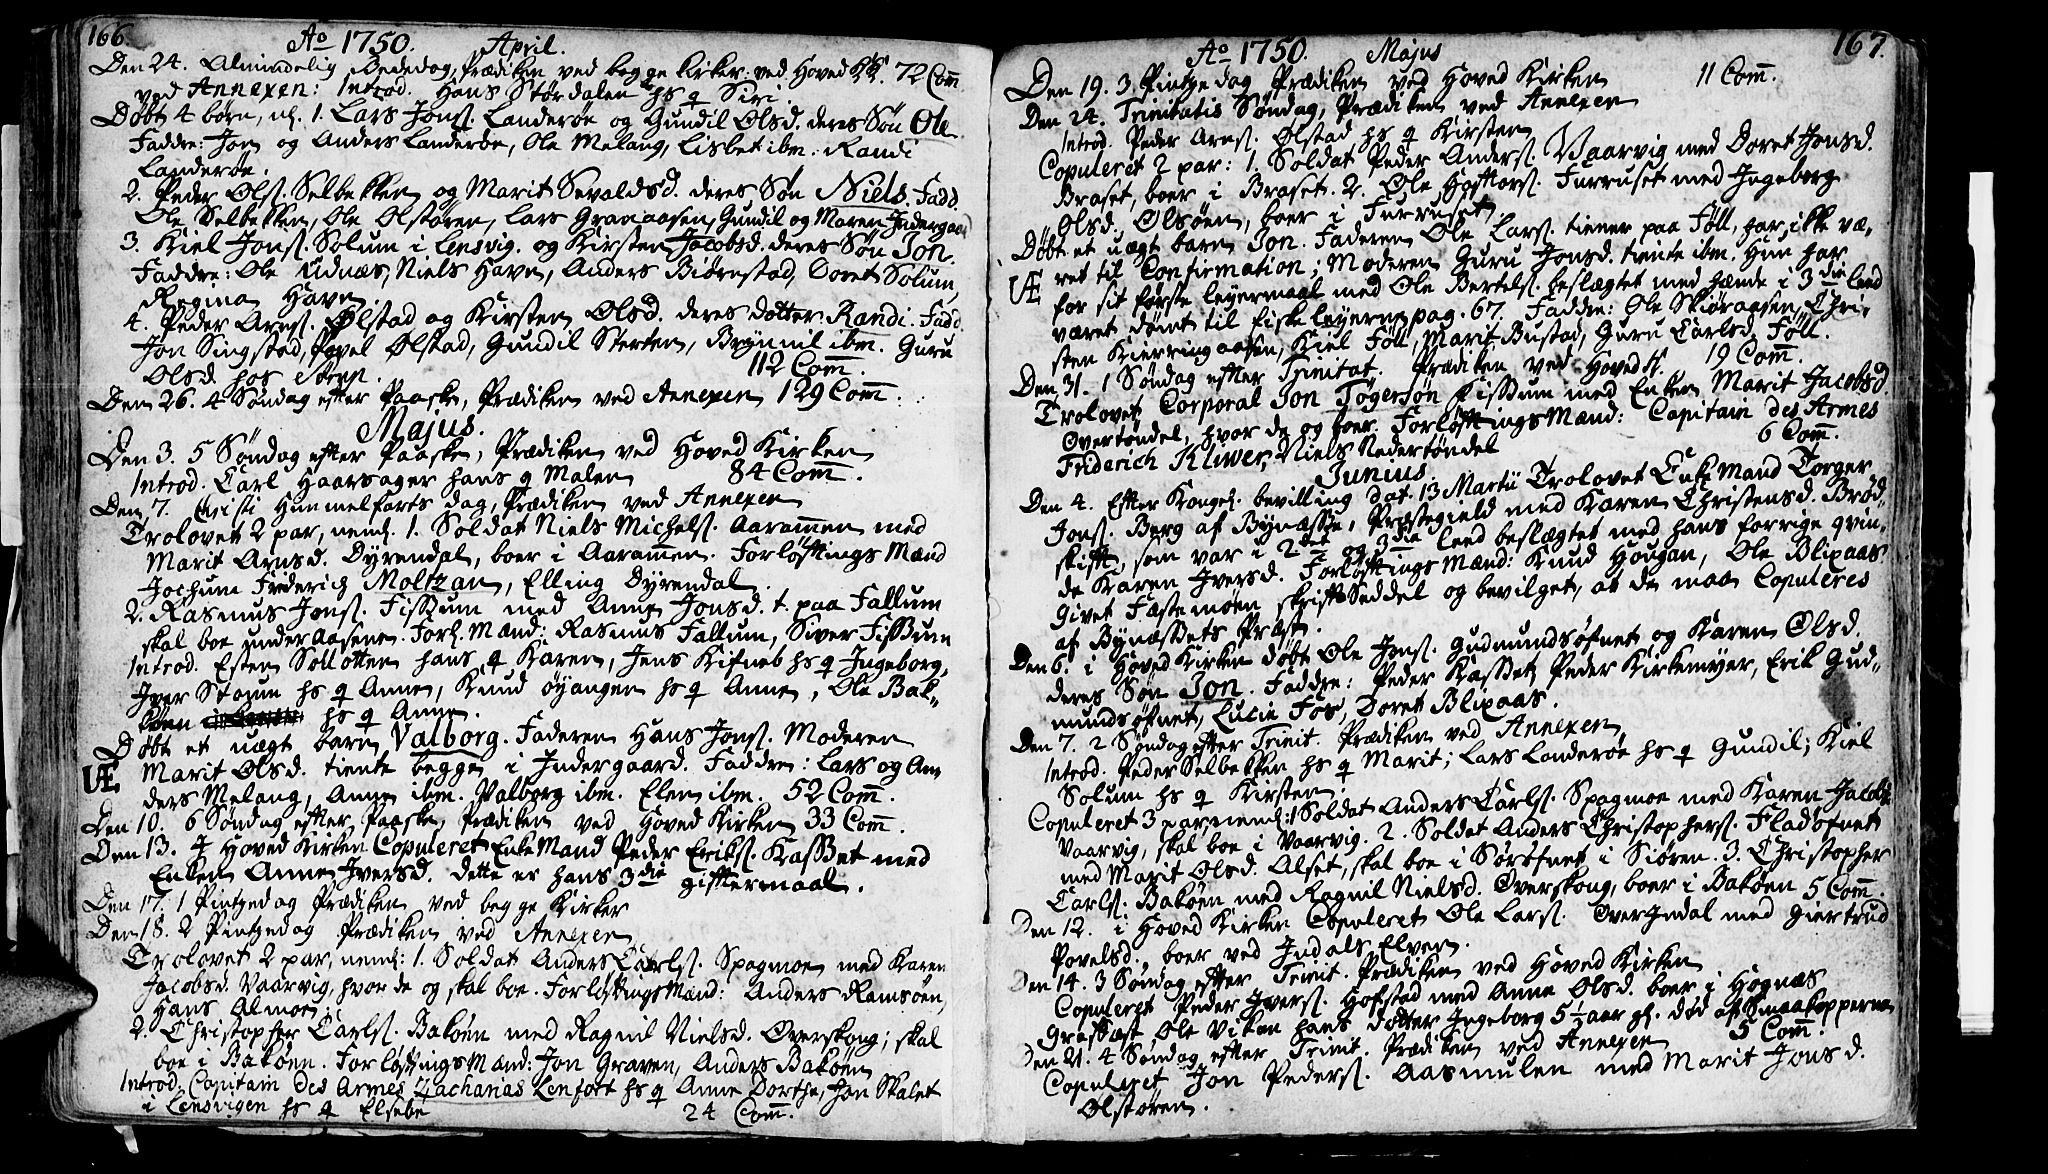 166.
Ao 1750. April.
Den 24. Almindelig Bededag, Prædiken ved begge kirker: ved Hoved K. 72 Com̅
ved Annexen: Introd. Hans Stordalen hs q Siri
Døbt 4 børn, nl. 1. Lars Jons. Landerøe og Gundil Olsd. deres Søn Ole.
Faddre: Jon og Anders Landerøe, Ole Melang, Lisbet ibm. Randi
Landerøe.
2. Peder Ols. Selbekken og Marit Sevaldsd. deres Søn Niels. Fadd.
Ole Selbekken, Ole Olstøren, Lars Granaasen, Gundil og Maren Indergaa
3. Kiel Jons. Solum i Lensvig. og Kirsten Jacobsd. deres Søn Jon.
Faddre: Ole Udnæs, Niels Havn, Anders Biørnstad, Doret Solum,
Regina Havn.
4. Peder Arns. Ølstad og Kirsten Olsd. deres dotter Randi. Fadd.
Jon Singstad, Povel Ølstad, Gundil Sterten, Brynnil ibm. Guru
Olsd. hos 112 Com̅.
Den 26. 4 Søndag efter Paaske, Prædiken ved Annexen 129 Com̅.
Majus.
Den 3. 5 Søndag efter Paaske, Prædiken ved Hoved Kirken
Introd. Carl Haarsager hans q Malen 84 Com̅.
Den 7. Christi Himmelfarts dag, Prædiken ved Annexen
Trolovet 2 par, neml. 1. Soldat Niels Michels. Aarammen med
Marit Arnsd. Dyrendal, boer i Aarammen. Forløftnings Mænd
Jochum Frederich Moltzan, Elling Dyrendal.
2. Rasmus Jons. Fissum med Anne Jonsd. t. paa Fallum
skal boe under Aasene. Forl. Mænd: Rasmus Fallum, Siver Fissum
Introd. Esten Solotten hans q Karen, Jens Kifneb hs q Ingeborg,
Iver Storun hs q Anne, Knud Øyangen hs q Anne, Ole Bak-
køen hs q Anne.
Døbt et uægt barn Valborg. Faderen Hans Jons. Moderen
UÆ Marit Olsd. tiente begge i Indergaard. Faddre: Lars og An-
ders Melang, Anne ibm. Valborg ibm. Elen ibm. 52 Com̅.
Den 10. 6 Søndag efter Paaske, Prædiken ved Hoved Kirken 33 Com̅.
Den 13. I Hoved Kirken Copuleret Enke Mand Peder Eriks. Kasset med
Enken Anne Iversd. dette er hans 3die giftermaal.
Den 17. 1 Pintzedag Prædiken ved begge Kirker
Den 18. 2 Pintzedag Prædiken ved Annexen
Trolovet 2 par, neml: 1. Soldat Anders Carls. Spagmoe med Karen
Jacobsd. Vaarvig, hvor de og skal boe. Forløftnings Mænd: Anders Ramsøen,
Hans Almoe.
2. Christopher Carls. Bakøen med Ragnil Nielsd. Overskong; skal
boe i Bakøen. Forløftnings Mænd: Jon Graven, Anders Bakøen
Introd. Capitain des Armes Zacharias Lenfort hs q Anne Dorthe, Jon Skalet
i Lensvigen hs q Elsebe 24 Com̅.
167.
Ao 1750. Majus
Den 19. 3 Pintzedag Prædiken ved Hoved Kirken 11 Com̅.
Den 24. Trinitatis Søndag, Prædiken ved Annexen
Introd. Peder Arns. Ølstad hs q Kirsten
Copuleret 2 par: 1. Soldat Peder Anders. Vaarvig med Doret Jonsd.
Braset, boer i Braset. 2. Ole Hosttors. Furruset med Ingeborg
Olsd. Olsøen, boer i Furruset
Døbt et uægt barn Jon. Faderen Ole Lars. tiener paa Føll, har ikke væ-
ret til Confirmation; Moderen Guru Jonsd. tiente ibm. Hun har
UÆ for sit første leyermaal med Ole Bertels. beslægtet med hende i 3die leed
været dømt til fiskeleyerne pag. 67. Faddre: Ole Skiøragsen, Chri-
sten Kierringaasen, Kiel Föll, Marit Bustad, Guru Carlsd. Föll.
Den 31. 1 Søndag efter Trinitat. Prædiken ved Hoved K. 19 Com̅.
Trolovet Corporal Jon Tøgersøn Fissum med Enken Marit Jacobsd.
Overtøndel, hvor de og boer. Forløftnings Mænd: Capitain des Armes
Friderich Kliwer, Niels Nedertøndel 6 Com̅.
Junius.
Den 4. Efter Kongel. bevilling dat. 13 Martii Trolovet Enke Mand Torger
Jons. Berg af Bynæsse, Præstegield med Karen Christensd. Brød-
skift, som var i 2det og 3die leed beslægtet med hans forrige qvin-
de Karen Iversd. Forløftnings Mænd: Knud Hougan, Ole Blixaas
Givet Fæstemøen skrifts Seddel og bevilget, at de maa Copuleres
af Bynæssets Præst.
Den 6. i Hoved Kirken døbt Ole Jons. Gudmundsøfnet og Karen Olsd.
deres Søn Jon. Faddre: Peder Kasset, Peder Kirkemyer, Erik Gud-
mundsøfnet, Lucie Fos, Doret Blixaas.
Den 7. 2 Søndag efter Trinit. Prædiken ved Annexen
Introd. Peder Selbekken hs q Marit; Lars Landerøe hs q Gundil; Kiel
Solum hs q Kirsten.
Copuleret 3 par neml: 1 Soldat Anders Carls. Spagmoe med Karen Jacobs
Vaarvig, skal boe i Vaarvig. 2. Soldat Anders Christophers. Fladøfnet
med Marit Olsd. Alset, skal boe i Sørøfnet i Siøren. 3. Christopher
Carls. Bakøen med Ragnil Nielsd. Overskong, boer i Bakøen 5 Com̅.
Den 12. i Hoved Kirken Copuleret Ole Lars. Over Indal med Giertrud
Povelsd. boer ved Indals Elven.
Den 14. 3 Søndag efter Trinit. Prædiken ved Hoved Kirken
Copuleret Peder Ivers. Hofstad med Anne Olsd. boer i Hognæs
Græsfæst Ole Viken hans dotter Ingeborg 5 ½ aar gl. død af Smaakopperne
Den 21. 4 Søndag efter Trinit. Prædiken ved Annexen 5 Com̅.
Copuleret Jon Peders. Aasmulen med Marit Jonsd.
Ølstøren.